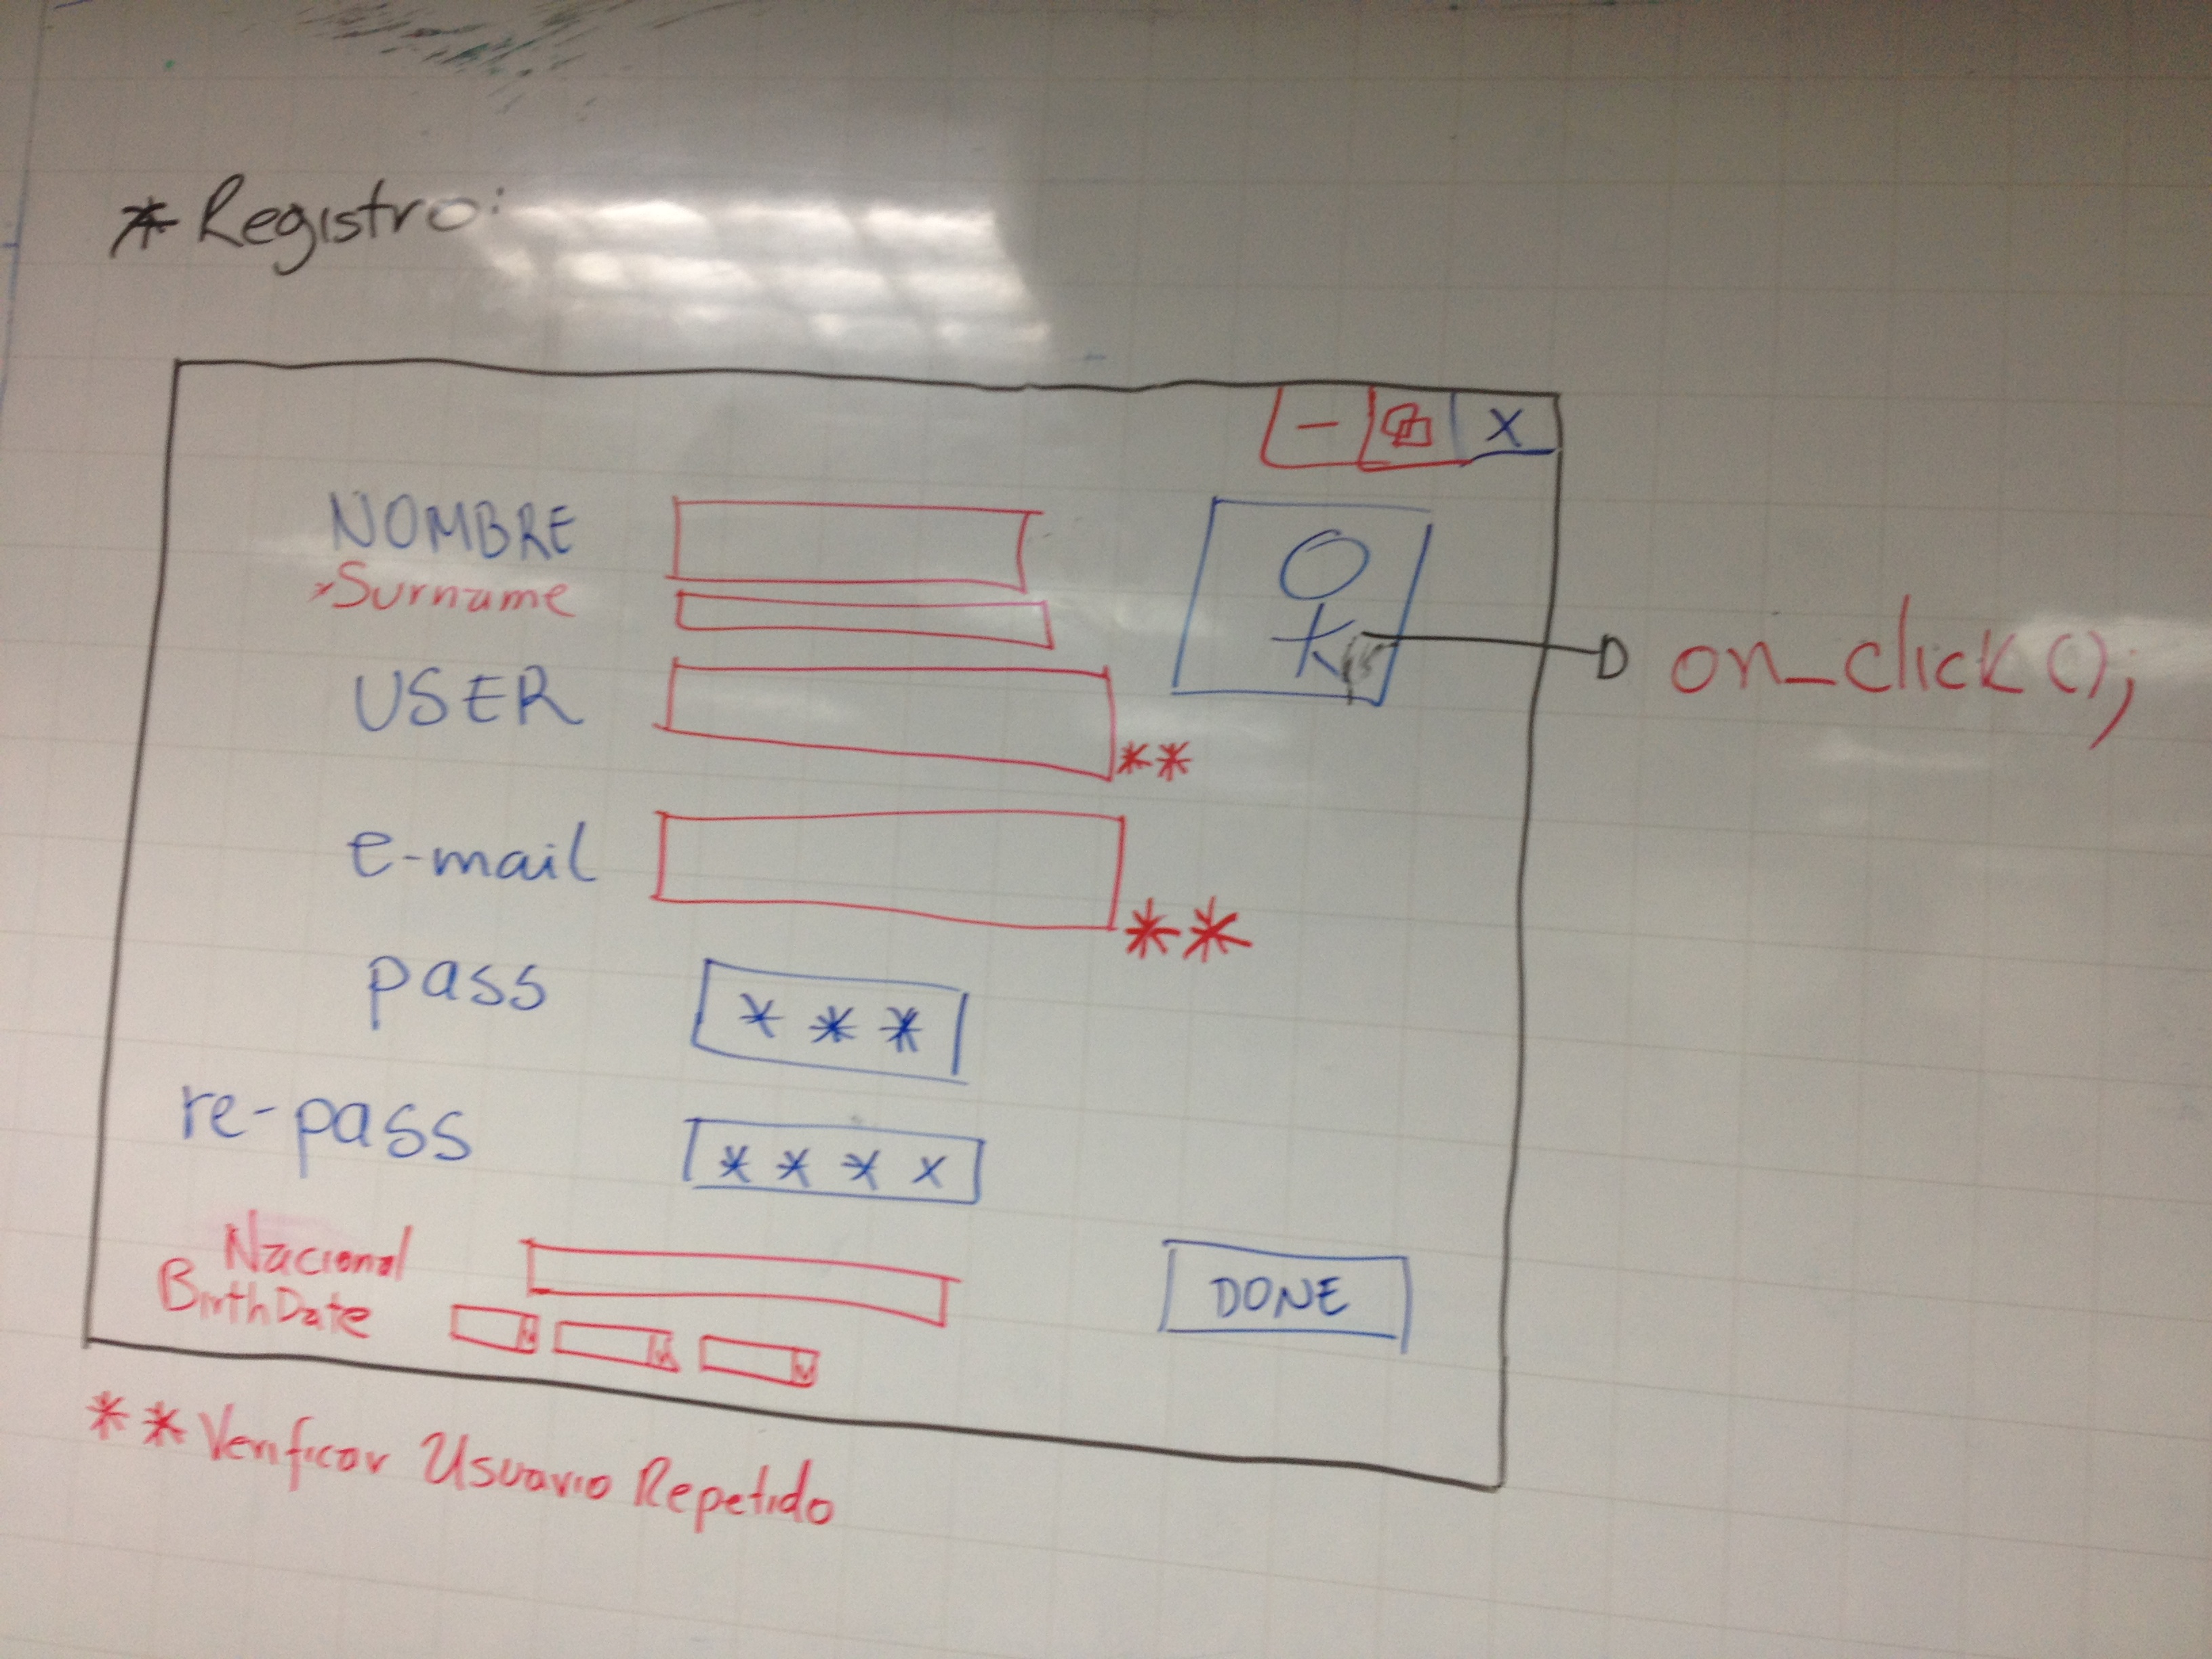 * Registro:
- X
NOMBRE
*Surname
USER
on_click();
**
e-mail
**
pass
* * *
re-pass
* * * x
Nacional
BirthDate
DONE
** Verificar Usuario Repetido